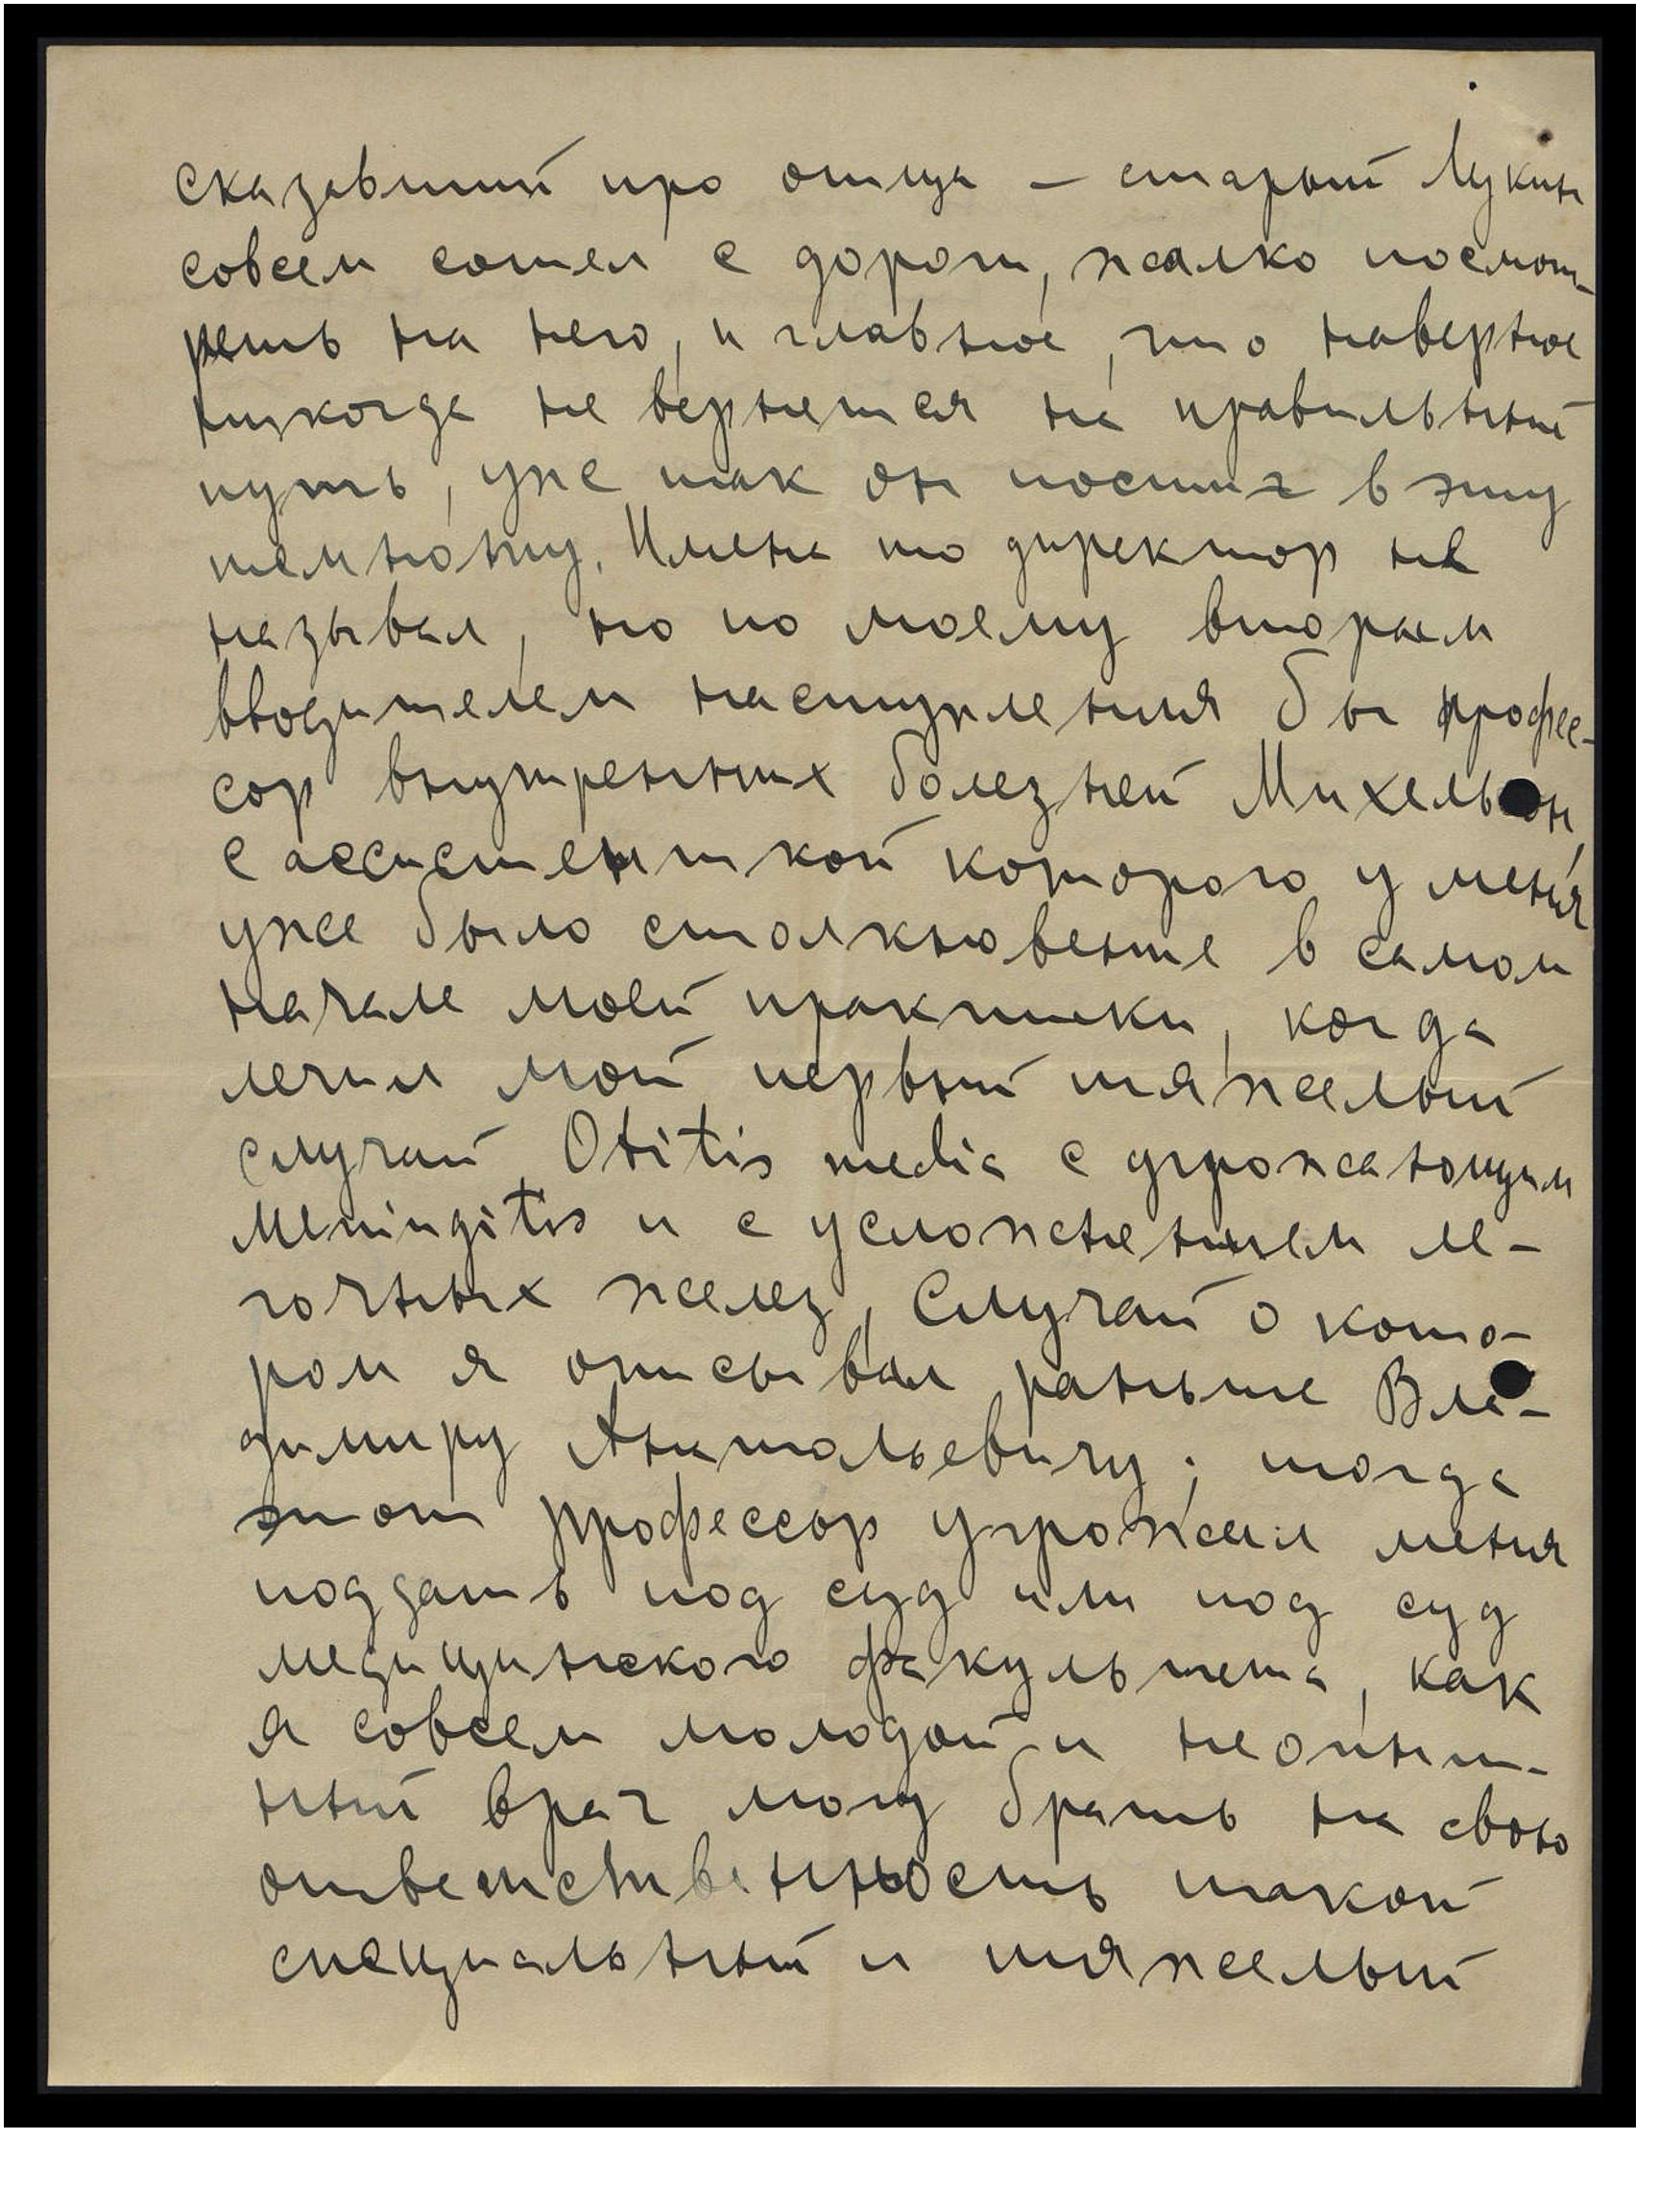 сказавший про отца – старый Лукин
совсем сошел с дороги, жалко посмот-
реть на него, и главное, что наверное
никогда не вернется на правильный
путь, уже так он постиг в эту
темноту. Имена то директор не
называл, но по моему вторым
вводителем наступления бы профес-
сор внутренних болезней Михельсон,
с ассистенткой которого у меня
уже было столкновение в самом
начале моей практики, когда
лечил мой первый тяжелый
случай Otitis media с угрожающим
Meningitis и с усложнением ле-
гочных желез, Случай о кото-
ром я описывал раньше Вла-
димиру Анатольевичу; тогда
этот профессор угрожал меня
поддать под суд или под суд
медицинского факультета, как
я совсем молодой и неопыт-
ный врач могу брать на свою
ответственность такой
специальный и тяжелый